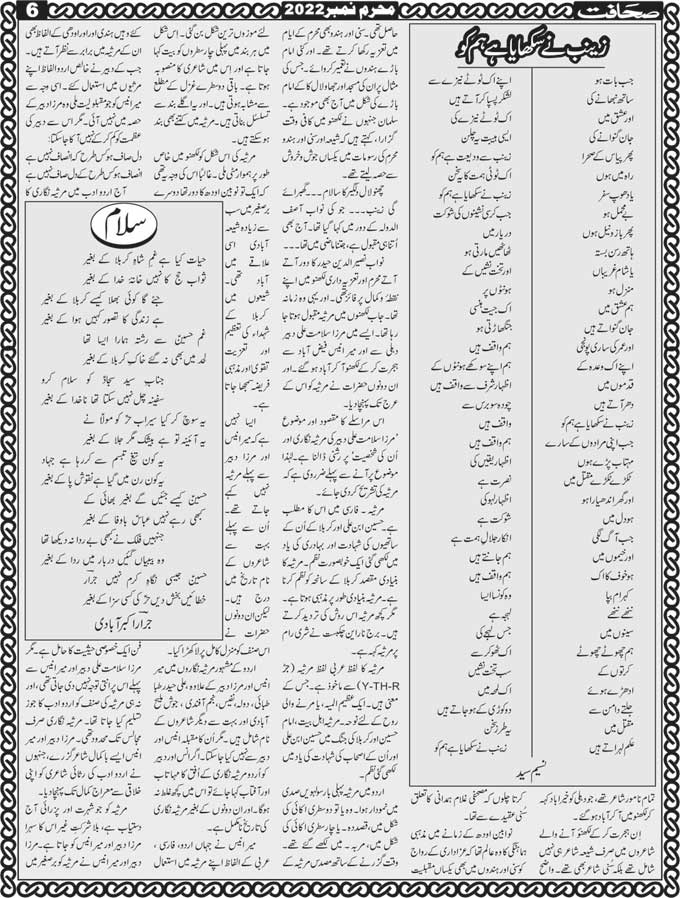 صحافت
محرم نمبر 2022
6
زینب نے سکھایا ہے ہم کو
جب بات ہو
ساتھ نبھانے کی
اور عشق میں
جان گنوانے کی
پھر پیاس کے صحرا
راہ میں ہوں
یا دھوپ سفر
بے مجمل ہو
پھر بازو نیل ہوں
ہاتھ رسن بستہ
یا شام غریباں
منزل ہو
ہم عشق میں
جان گنواتے ہیں
اور عمر کی ساری پونجی
اپنے اک وعدہ کے
قدموں میں
دھر آتے ہیں
زینب نے سکھایا ہے ہم کو
جب اپنی مرادوں کے سارے
مہتاب پڑے ہوں
ٹکڑے ٹکڑے مقتل میں
اور گھر اندھیارا ہو
ہو دل میں
جب آگ لگی
اور خیموں میں
ہو خوف کا اک
کہرام بپا
ننھے ننھے
سینوں میں
ہم چھوٹے چھوٹے
کرتوں کے
ادھڑے ہوئے
جلتے دامن سے
مقتل میں
علم لہراتے ہیں
اپنے اک ٹوٹے نیزے سے
لشکر پسپا کر آتے ہیں
اک ٹوٹے نیزے کی
ایسی ہیبت یہ چلن
زینب سے ودیعت ہے ہم کو
اک ٹوٹی ہمت کا یہ سخن
زینب نے سکھایا ہے ہم کو
جب کرسی نشینوں کی شوکت
دربار میں
ٹھاٹھیں مارتی ہو
اور تخت نشیں کے
ہونٹوں پر
اک جیت ہنسی
چنگھاڑتی ہو
ہم واقف ہیں
اپنے سوکھے ہونٹوں کے
اظہار شرف سے واقف ہیں
چودہ سو برس سے
واقف ہیں
ہم واقف ہیں
اظہار یقیں کی
نصرت ہے
اظہار لہو کی
شوکت ہے
انکار جلال ہمت ہے
ہم جانتے ہیں
ہم واقف ہیں
وہ کونسا ایسا
لہجہ ہے
جس لہجے کی
اک ٹھوکر سے
سب تخت نشیں
اک لمحہ میں
دو کوڑی کے ہوجاتے ہیں
یہ طرز سخن
زینب نے سکھایا ہے ہم کو
نسیم سید
تمام نامور شعراء تھے، جو دہلی کو خیرآباد کہہ
کر لکھنو میں آکر آباد ہو گئے۔
اِن ہجرت کر کے لکھنؤ آنے والے
شاعروں میں صرف شیعہ شاعر ہی نہیں
شامل تھے بلکہ سُنی شاعر بھی تھے۔ واضح
کرتا چلوں کہ مصحفی غلام ہمدانی کا تعلق
سُنی عقیدے سے تھا۔
نوابین اودھ کے زمانے میں مذہبی
ہماہنگی کا وہ عالم تھا کہ عزاداری کے رواج
کو سنی اور ہندوں میں بھی یکساں مقبولیت
حاصل تھی۔ سنی اور ہندو بھی محرم کے ایام
میں تعزیہ رکھا کرتے تھے۔ اور کئی امام
باڑے ہندوں نے تعمیر کروائے۔ جس کی
مثال پران کی مسجد اور جھاؤلال کا کے امام
باڑے کی شکل میں آج بھی موجود ہے۔
سلمان جنہوں نے لکھنومیں کافی وقت
گزارا، کہتے ہیں کہ شیعہ اور سنی اور ہندو
محرم کی رسومات میں یکساں جوش و خروش
سے حصہ لیتے تھے۔
چھنولال دلگیر کا سلام ۔۔ گھبرائے
گی زینب۔۔۔ جو کی نواب آصف
الدولہ کے دور میں کہا گیا تھا۔ آج بھی
اُتنا ہی مقبول ہے، جتنا ماضی میں تھا۔۔۔
نواب نصیر الدین حیدر کا دور آتے
آتے محرم اور تعزیہ داری لکھنو میں اپنے
نقطۂ و کمال پر فائز تھی۔ اور یہی وہ زمانہ
تھا۔ جب لکھنومیں مرثیہ مقبول ہوتا جا
رہا تھا۔ ایسے میں مرزا سلامت علی دبیر
دہلی سے اور میر انیس فیض آباد سے
ہجرت کر کے لکھنو آکر آباد ہو گئے۔ اور
اِن دونوں حضرات نے مرثیہ کو اس کے
عرج تک پہنچا دیا۔
اس مراسلے کا مقصود اور موضوع
'مرزا سلامت علی دبیر کی مرثیہ نگاری اور
اُن کی شخصیت' پر رشنی ڈالنا ہے۔ لہٰذا
موضوع پر آنے سے پہلے ضروری ہے کہ
مرثیہ کی تشریح کر دی جائے۔
مرثیہ۔ فارسی میں اس کا مطلب
ہے۔ حسین ابن علی اور کربلا کے اُن کے
ساتھیوں کی شہادت اور بہادری کی یاد
میں لکھی گئی ایک خوبصورت نظم۔ مرثیہ کا
بنیادی مقصد کربلا کے سانحہ کو نظم کرنا
ہے۔ مرثیہ بنیادی طور پر مذہبی ہوتا ہے۔
مگر کچھ مرثیہ اس روش کی تردید کرتے
ہیں۔ برج نارائن چکبست نے شری رام
پر مرثیہ کہا ہے۔
مرثیہ کا لفظ عربی لفظ مرثیہ (جڑ
Y-TH-R) سے ماخوذ ہے۔ جس کے
معنی ہیں۔ ایک عظیم المیہ، یا مرنے والی
روح کے لئے نوحہ۔ مرثیہ اہل بیت، امام
حسین ابن علی اور کربلا کی جنگ میں حسین ابن علی
اور اُن کے اصحاب کی شہادت کی یاد میں
لکھی گئی نظم۔
اردو میں مرثیہ پہلی بار سولہویں صدی
میں نمودار ہوا۔ وہ یا تو دو سطری اکائی کی
شکل میں، قصیدہ۔ یا چار سطری اکائی کی
شکل میں، مربہ۔ میں لکھے گئے تھے۔
وقت گزرنے کے ساتھ مسدس مرثیہ کے
لئے موزوں ترین شکل بن گئی۔ اِس شکل
میں ہر بند میں پہلی چار سطروں کو بیت کہا
جاتا ہے اور اِس میں شاعری کا منصوبہ
ہے۔ باقی دو سطرے غزل کے مطلع
سے مشابہ ہوتی ہیں۔ اور یہ اگلے بند سے
تسلسل بناتی ہیں۔ مرثیہ میں کتنے بھی بند
ہوسکتے ہیں۔
مرثیہ کی اِس شکل کو لکھنومیں خاص
طور پر ہموار مٹی ملی۔ غالباً اس کی وجہ یہ تھی
کہ ایک تو نوابین اودھ کا دور تھا دوسرے
برصغیر میں سب
سے زیادہ شیعہ
آبادی اسی
علاقے میں
آباد تھی۔
شیعوں میں
شہداء کی تعظیم
اور تعزیت
تقویٰ اور مذہبی
فریضہ سمجھا جاتا
ہے۔
ایسا نہیں
ہے کہ میر انیس
اور مرزا دبیر
سے پہلے مرثیہ
نہیں کہے
جاتے تھے۔
اُن سے پہلے
بہت سے
شاعروں کے
نام تاریخ میں
درج ہیں۔
لیکن ان دونوں
حضرات نے
اس صنف کو منزل کامل پر لا کھڑا کیا۔
اردو کے مشہور مرثیہ نگاروں میں میر
انیس اور مرزا دبیر کے علاوہ، علی حیدر طبا
طبائی، دولہ، نفیس، نجم آفندی، جوش ملیح
آبادی اور بہت سے دیگر شاعروں کے
نام شامل ہیں۔ مگر اُن کا مقابلہ انیس اور
دبیر سے نہیں کیا جاسکتا۔ اگر انیس اور دبیر
کو اُردو مرثیہ نگاری کے اُفق کا ماہتاب
اور آفتاب کہا جائے تو اس میں کچھ غلط نہ
ہوگا۔ اور ان دونوں کے بغیر مرثیہ نگاری
کی تاریخ نامکمل ہے۔
میر انیس نے جہاں اردو، فارسی،
عربی کے الفاظ اپنے مرثیہ میں استعمال
کئے وہیں ہندی اور اودھی کے الفاظ بھی
اُن کے مرثیہ میں برابر سے نظر آتے ہیں۔
جب کے دبیر نے خالص اردو الفاظ اپنے
مرثیوں میں استعمال کئے۔ اسی وجہ سے
میرا نیس کو جو مقبولیت ملی وہ مرزا دبیر کے
حصہ میں نہیں آئی۔ مگر اس سے دبیر کی
عظمت کو کم کر کے نہیں آکا جا سکتا:
دل صاف ہو کس طرح کہ انصاف نہیں ہے
انصاف ہو کس طرح کہ دل صاف نہیں ہے
آج اردو ادب میں مرثیہ نگاری کا
سلام
حیات کیا ہے غم شاہِ کربلا کے بغیر
ثواب حج کا نہیں خانۂ خدا کے بغیر
جئے گا کوئی بھلا کیسے کربلا کے بغیر
ہے زندگی کا تصور کہیں ہوا کے بغیر
غم حسین سے رشتہ ہمارا ایسا تھا
لحد میں بھی نہ گئے خاکِ کربلا کے بغیر
جناب سید سجادؑ کو سلام کرو
سفینہ چل نہیں سکتا تھا ناخدا کے بغیر
یہ سوچ کر کیا سیراب حُر کو مولاؑ نے
یہ آئینہ تو ہے بیشک مگر جلا کے بغیر
یہ کون تیغ تبسم سے کر رہا ہے جہاد
یہ کون رن میں گیا ہے نقوش پا کے بغیر
حسین کیسے جئیں گے بغیر بھائی کے
کبھی رہے نہیں عباسؑ باوفا کے بغیر
جنہیں فلک نے بھی بے ردا نہ دیکھا تھا
وہ بیبیاں گئیں دربار میں ردا کے بغیر
حسین جیسی نگاہِ کرم نہیں جرارؔ
خطائیں بخش دیں حُر کی کسی سزا کے بغیر
جرار اکبرآبادی
فن ایک خصوصی حیثیت کا حامل ہے۔ مگر
مرزا سلامت علی دبیر اور میر انیس سے
پہلے اس پر اتنی توجہ نہیں دی جاتی تھی، اور
نہ ہی مرثیہ کی صنف کو اردو ادب کا جوز
تسلیم کیا جاتا تھا۔ مرثیہ نگاری صرف
مجالس تک محدود تھی۔ مرزا دبیر اور میر
انیس ایسے با کمال شاعر گزرے، جنہوں
نے اردو ادب کی رثائی شاعری کو اپنی
خلاقی سے معراج کمال تک پہنچا دیا۔
مرثیہ کو جو شہرت اور پزرائی آج
دستیاب ہے، بلا شرکت غیر اس کا سہرا
مرزا دبیر اور میر انیس کے سر جاتا ہے۔ مرزا
دبیر اور میر انیس نے مرثیہ کو برصغیر میں